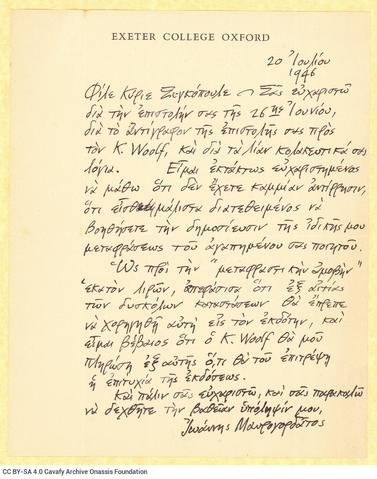 EXETER COLLEGE OXFORD
20 Ἰουλίου
1946
Φίλε Κύριε Σεγκόπουλε – Σᾶς εὐχαριστῶ
διὰ τὴν ἐπιστολήν σας τῆς 26ης Ἰουνίου,
διὰ τὸ ἀντίγραφον τῆς ἐπιστολῆς σας πρὸς
τὸν Κ. Woolf, καὶ διὰ τὰ λίαν κολακευτικά σας
λόγια. Εἶμαι ἐκτάκτως εὐχαριστημένος
νὰ μάθω ὅτι δὲν ἔχετε καμμίαν ἀντίρρησιν,
ὅτι εἶσθε μάλιστα διατεθειμένος νὰ
βοηθήσετε τὴν δημοσίευσιν τῆς ἰδικῆς μου
μεταφράσεως τοῦ ἀγαπημένου σας ποιητοῦ.
Ὡς πρὸς τὴν "μεταφραστικὴν ἀμοιβὴν"
ἑκατὸν λιρῶν, ἀπεφάσισα ὅτι ἐξ αἰτίας
τῶν δυσκόλων καταστάσεων θὰ ἔπρεπε
νὰ χορηγηθῇ αὐτὴ εἰς τὸν ἐκδότην, καὶ
εἶμαι βέβαιος ὅτι ὁ Κ. Woolf θὰ μοῦ
πληρώσῃ ἐξ αὐτῆς ὅ,τι θὰ τοῦ ἐπιτρέψῃ
ἡ ἐπιτυχία τῆς ἐκδόσεως.
Καὶ πάλιν σᾶς εὐχαριστῶ, καὶ σᾶς παρακαλῶ
νὰ δεχθῆτε τὴν βαθεῖαν ὑπόληψίν μου,
Ἰωάννης Μαυρογορδᾶτος
CC BY-SA 4.0 Cavafy Archive Onassis Foundation